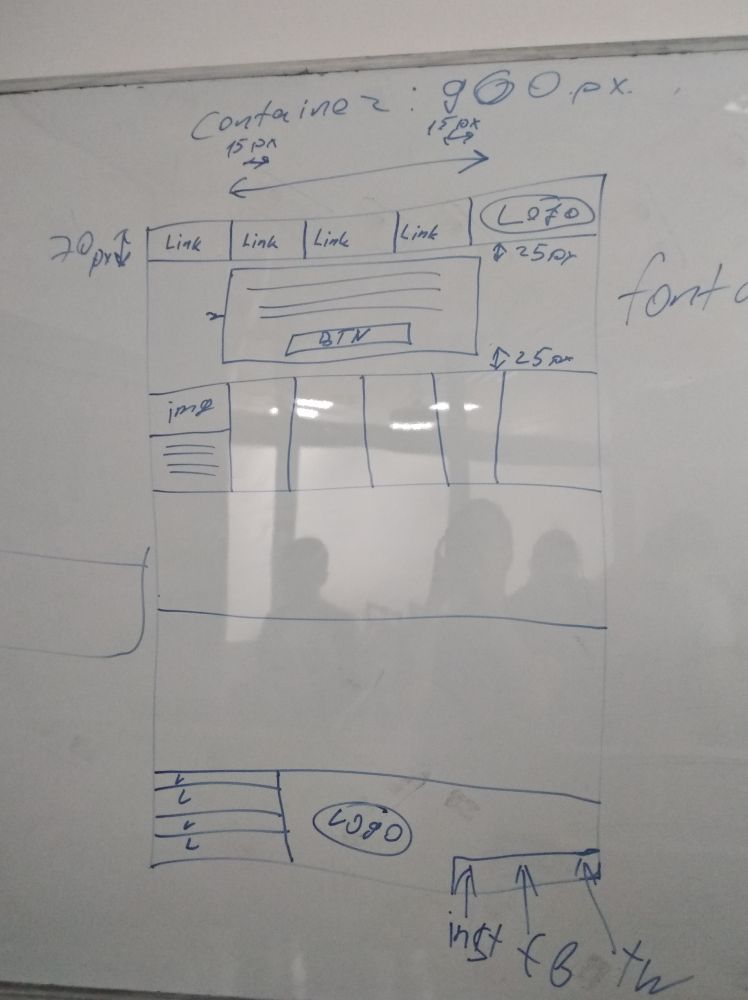 Container: 900.px.
15px 15px
70px Link Link Link Link LOGO
25px
fonta
BTN
25px
img
L
L
L
L
LOGO
inst fB tw